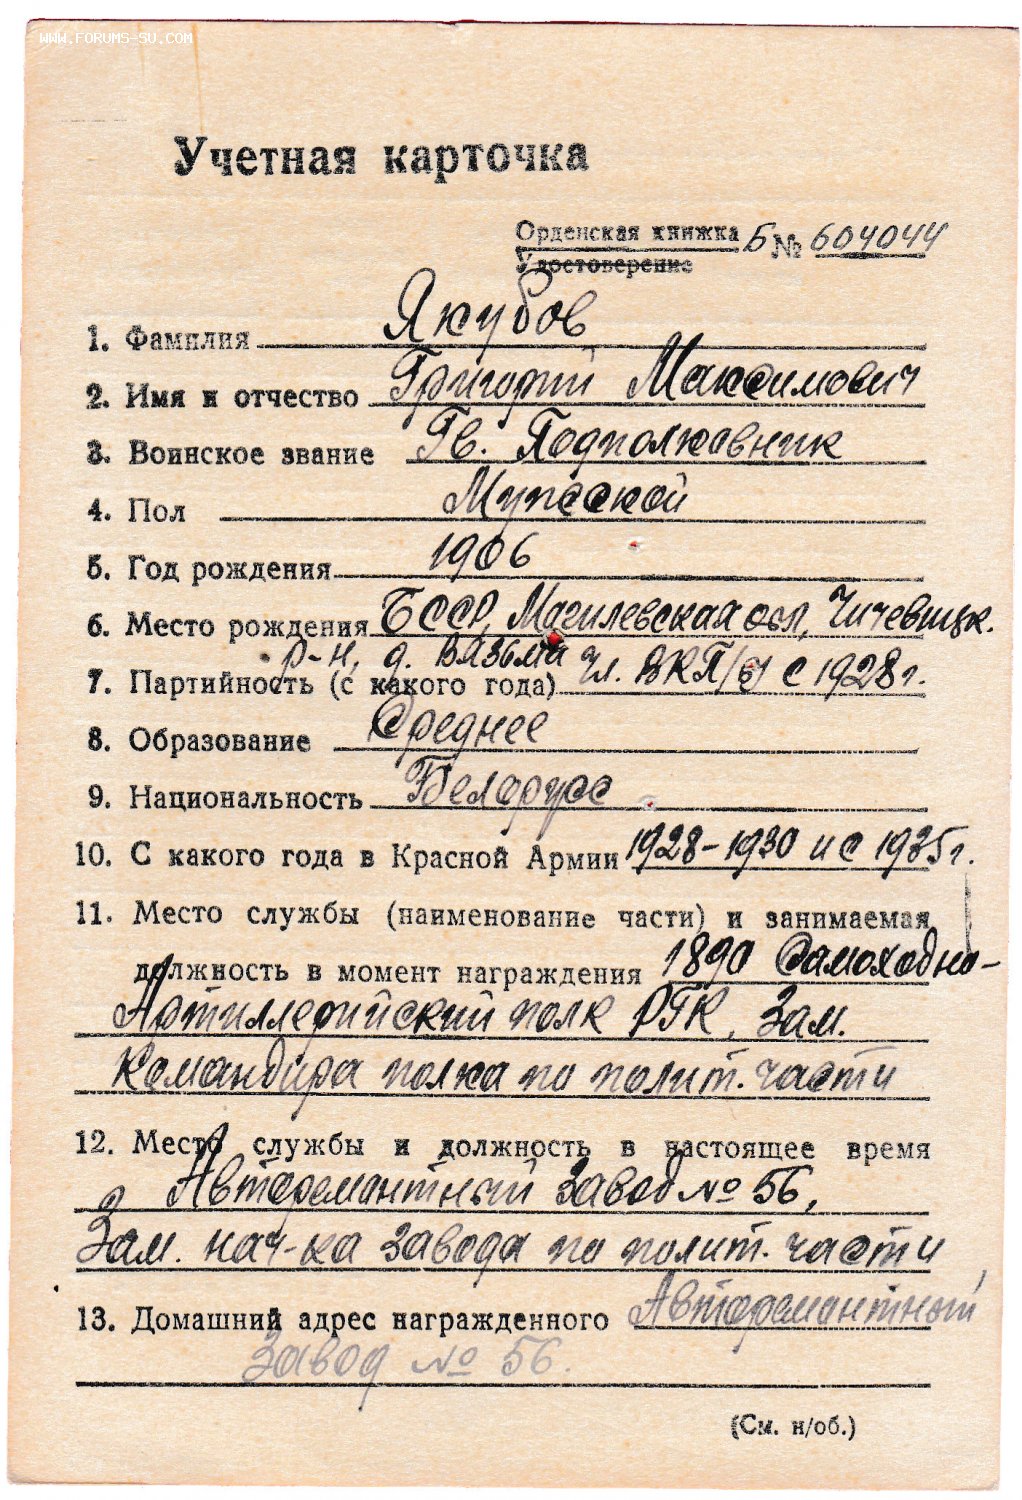 WWW.FORUMS-SU.COM
Учетная карточка
Орденская книжка Б № 604044
Удостоверение
1. Фамилия Якубов
2. Имя и отчество Григорий Максимович
3. Воинское звание Гв. Подполковник
4. Пол Мужской
5. Год рождения 1906
6. Место рождения БССР, Магилевская обл, Чичевицк.
р-н, д. Вязьма
7. Партийность (с какого года) Чл. ВКП/б/ с 1928 г.
8. Образование Среднее
9. Национальность Беларусс
10. С какого года в Красной Армии 1928-1930 и с 1935 г.
11. Место службы (наименование части) и занимаемая
должность в момент награждения 1890 Самоходно-
Артиллерийский полк РГК, Зам.
Командира полка по полит. части
12. Место службы и должность в настоящее время
Авторемантный Завод № 56,
Зам. нач-ка завода по полит. части
13. Домашний адрес награжденного Авторемантный
Завод № 56.
(См. н/об.)